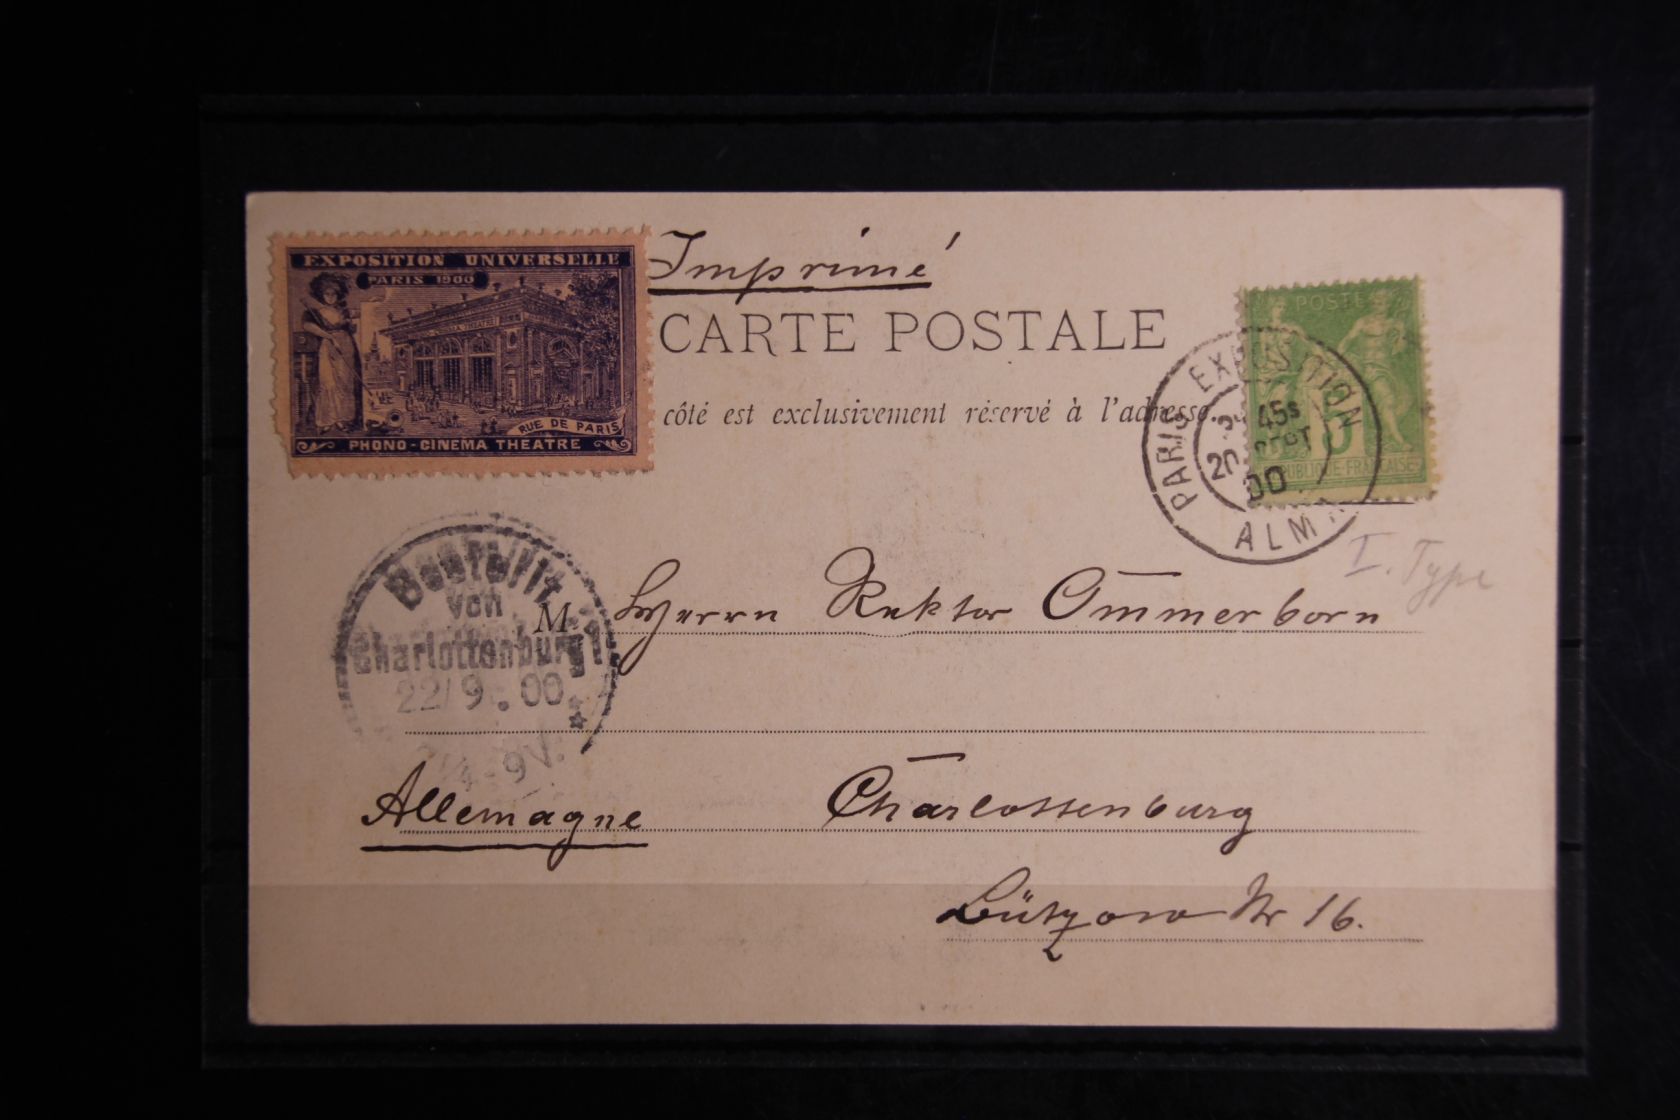 EXPOSITION UNIVERSELLE
PARIS 1900
RUE DE PARIS
PHONO-CINEMA THEATRE
Imprimé
CARTE POSTALE
côté est exclusivement réservé à l'adresse.
POSTE
5
RÉPUBLIQUE-FRANÇAISE
PARIS EXPOSITION
45s
20 SEPT
00
I. Type
Bestellt
von
Charlottenburg 1
22/9.00
-9V.
M Herrn Rektor Ommerborn
Allemagne Charlottenburg
Lützow Str 16.